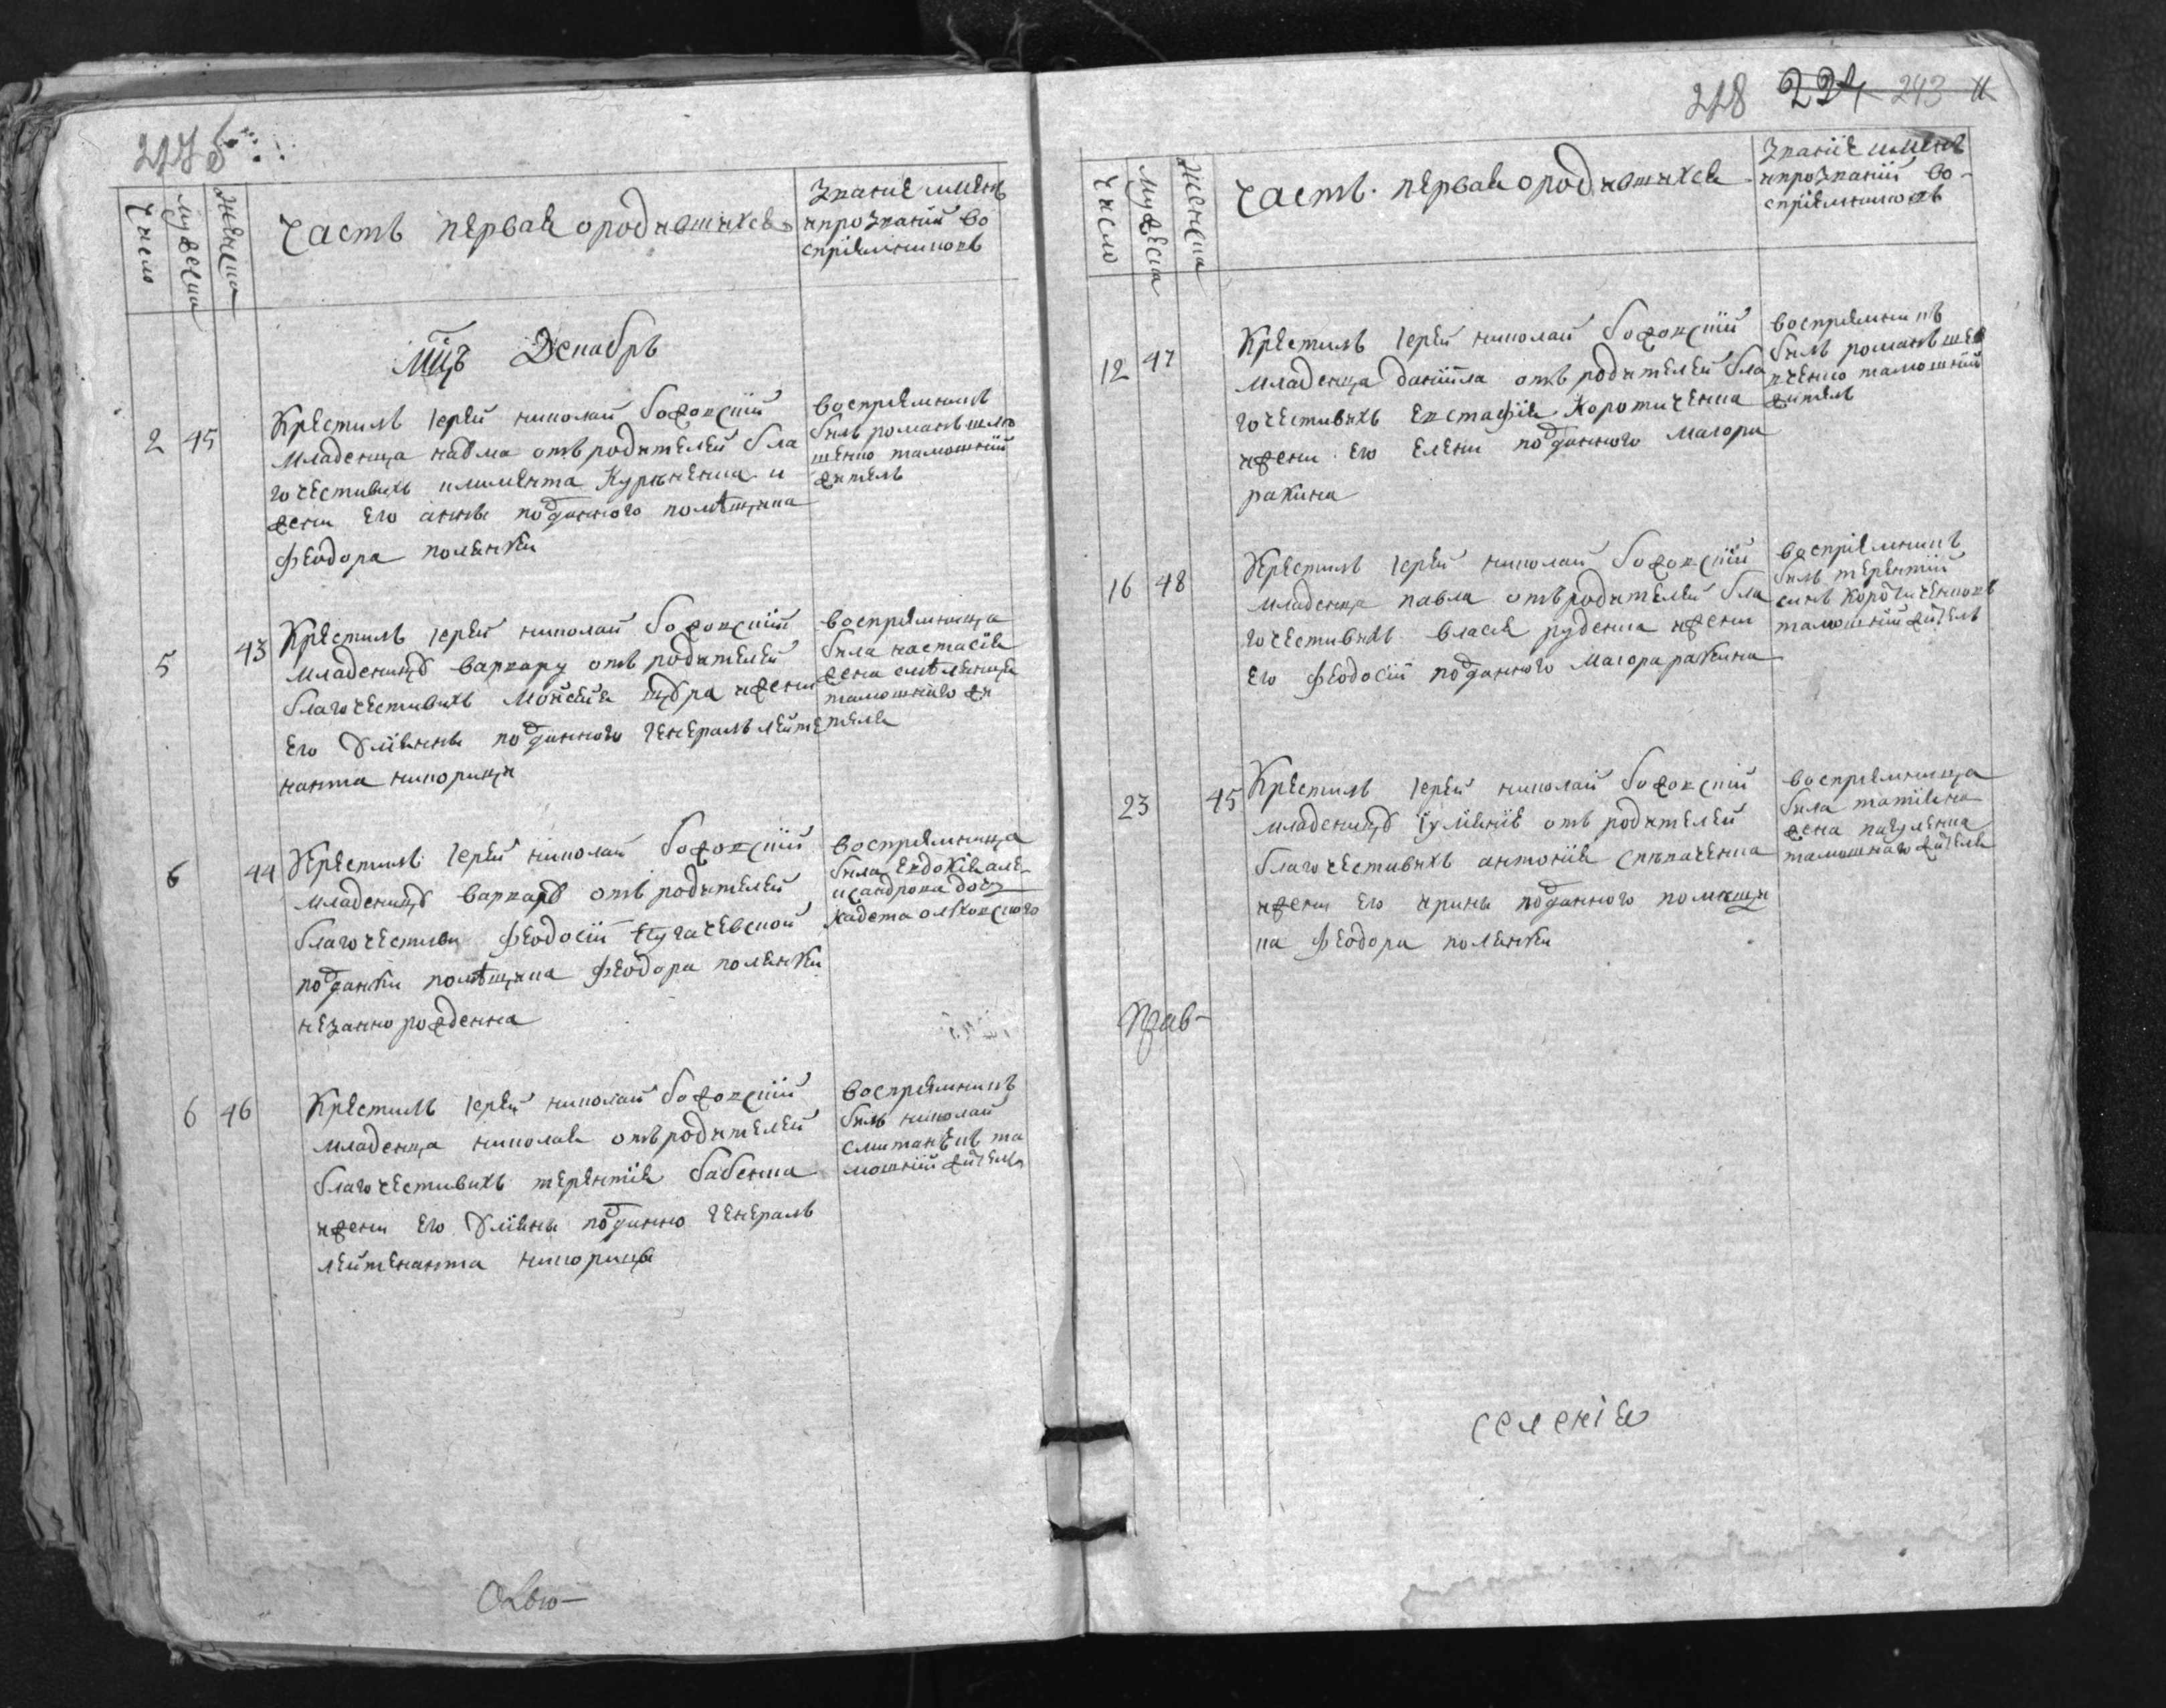 Число
мужеска
женска
Часть первая о родившихся
Звание именъ
и прозваний во
сприемниковъ
Мцъ Декабрь
2 45
Крестилъ Іерей николай божовскій
младенца наѵма отъ родителей бла
гочестивихъ климента Куриненка и
жени его анны подданного помѣщика
феодора поленки
восприемникъ
билъ романъ
тамошній
житель
5 43
Крестилъ іерей николай божовскій
младеницу варвару отъ родителей
благочестивихъ Мойсея щура и жени
его Улияны подданного генералъ лейте
нанта никорици
восприемница
била настасія
жена
тамошнаго жи
теля
6 44
Крестилъ Іерей николай божовскій
младеницу варвару отъ родителей
благочестиви феодосіи Пугачевской
подданки помѣщика феодора поленки
незаннорожденна
восприемница
била Евдокія але
ксандрова дочь
кадета
6 46
Крестилъ іерей николай божовскій
младенца николая отъ родителей
благочестивихъ терентія бабенка
и жени его Улияны подданно генералъ
лейтенанта никорици
восприемникъ
билъ николай
та
мошній житель
228 224 243
Число
мужеска
женска
Часть первая о родившихся
Звание именъ
и прозваний во-
сприемниковъ
12 47
Крестилъ Іерей николай божовскій
младенца даніила отъ родителей бла
гочестивихъ Евстафія Коротиченка
и жени его Елени подданного Маіора
ракина
восприемникъ
билъ романъ шев
ченко тамошній
житель
16 48
Крестилъ Іерей николай божовскій
младенца павла отъ родителей бла
гочестивихъ власія руденка и жени
его феодосіи подданного Маіора ракина
восприемникъ
билъ терентій
синъ
тамошній житель
23 45
Крестилъ Іерей николай божовскій
младеницу іуліянію отъ родителей
благочестивихъ антонія
и жени его ирины подданного помещи
ка феодора поленки
восприемница
била татіяна
жена
тамошнаго жителя
селенія